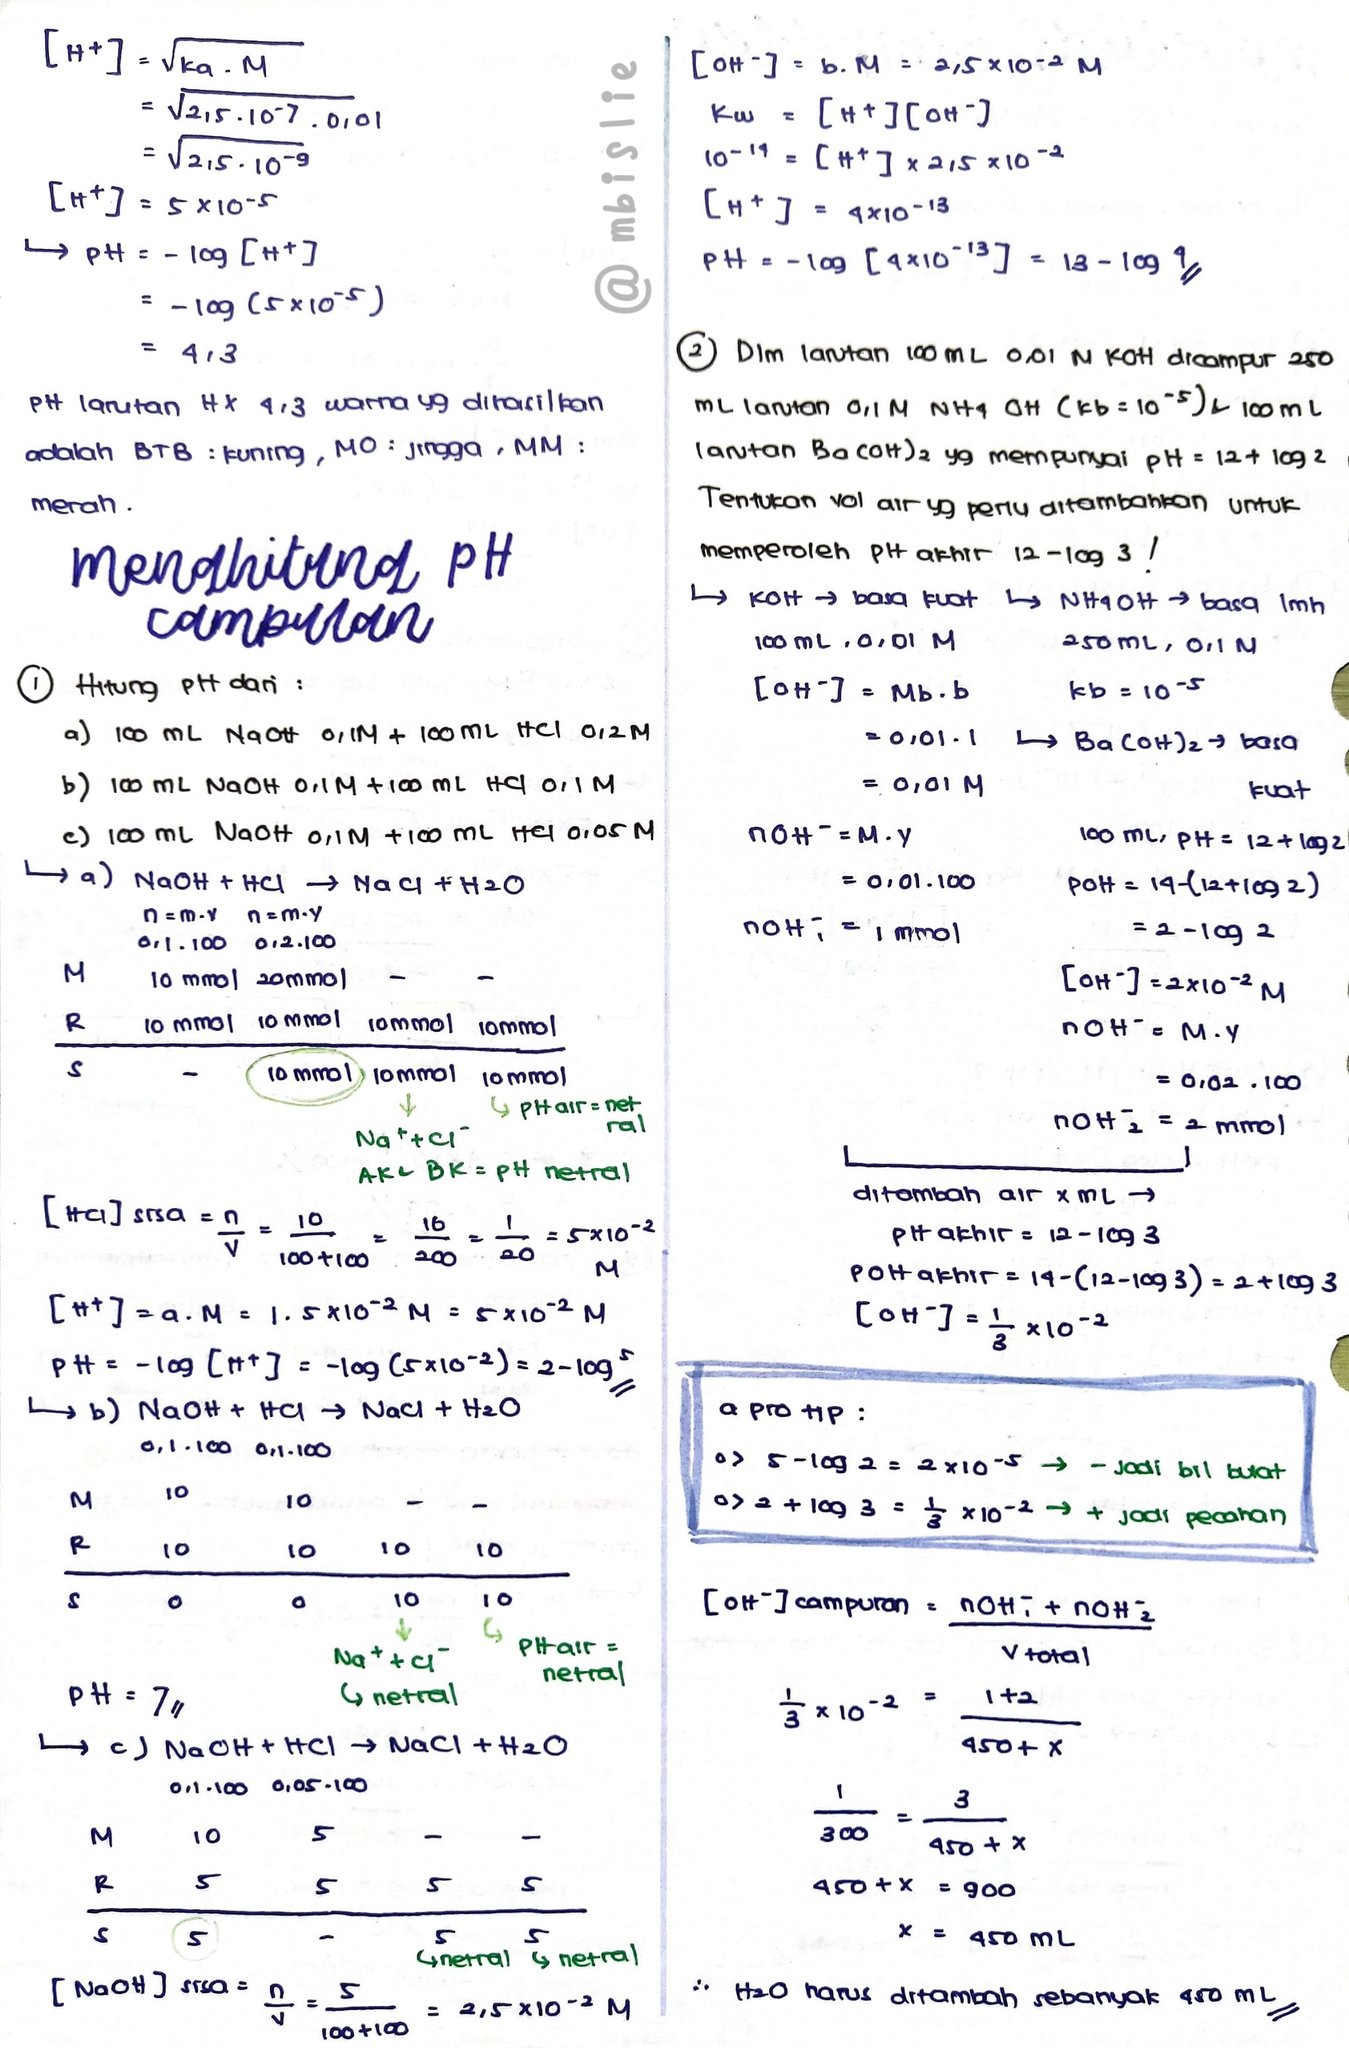 [H+] = √ka . M
= √2,5 . 10-7 . 0,01
= √2,5 . 10-9
[H+] = 5 x 10-5
↳ pH = - log [H+]
= - log (5 x 10-5)
= 4,3
pH larutan HX 4,3 warna yg dihasilkan
adalah BTB : kuning, MO : jingga, MM :
merah.
@mbislie
Menghitung pH
campuran
① Hitung pH dari :
a) 100 mL NaOH 0,1M + 100 mL HCl 0,2 M
b) 100 mL NaOH 0,1 M + 100 mL HCl 0,1 M
c) 100 mL NaOH 0,1M + 100 mL HCl 0,05 M
↳ a) NaOH + HCl → NaCl + H2O
n = m.v n = m.v
0,1 . 100 0,2 . 100
M 10 mmol 20 mmol - -
R 10 mmol 10 mmol 10 mmol 10 mmol
S - 10 mmol 10 mmol 10 mmol
↓ ↳ pH air = net
ral
Na+ + Cl-
AK & BK = pH netral
[HCl] sisa = n/v = 10/100+100 = 10/200 = 1/20 = 5 x 10-2
M
[H+] = a . M = 1 . 5 x 10-2 M = 5 x 10-2 M
pH = - log [H+] = -log (5 x 10-2) = 2 - log 5
↳ b) NaOH + HCl → NaCl + H2O
0,1 . 100 0,1 . 100
M 10 10 - -
R 10 10 10 10
S 0 0 10 10
↓ ↳ pH air =
netral
Na+ + Cl-
↳ netral
pH = 7
↳ c) NaOH + HCl → NaCl + H2O
0,1 . 100 0,05 . 100
M 10 5 - -
R 5 5 5 5
S 5 - 5 5
↳ netral ↳ netral
[NaOH] sisa = n/v = 5/100+100 = 2,5 x 10-2 M
[OH-] = b . M = 2,5 x 10-2 M
Kw = [H+][OH-]
10-14 = [H+] x 2,5 x 10-2
[H+] = 4x10-13
pH = - log [4x10-13] = 13 - log 4
② Dlm larutan 100 mL 0,01 M KOH dicampur 250
mL larutan 0,1 M NH4 OH (kb = 10-5) & 100 mL
larutan Ba(OH)2 yg mempunyai pH = 12 + log 2
Tentukan vol air yg perlu ditambahkan untuk
memperoleh pH akhir 12 - log 3 !
↳ KOH → basa kuat ↳ NH4OH → basa lmh
100 mL , 0,01 M 250 mL , 0,1 M
[OH-] = Mb . b kb = 10-5
= 0,01 . 1 ↳ Ba(OH)2 → basa
= 0,01 M kuat
nOH- = M . V 100 mL, pH = 12 + log 2
= 0,01 . 100 pOH = 14-(12+log 2)
nOH-1 = 1 mmol = 2 - log 2
[OH-] = 2x10-2 M
nOH- = M . V
= 0,02 . 100
nOH-2 = 2 mmol
ditambah air x mL →
pH akhir = 12 - log 3
pOH akhir = 14-(12-log 3) = 2+log 3
[OH-] = 1/3 x 10-2
a pro tip :
o> 5 - log 2 = 2 x 10-5 → - jadi bil bulat
o> 2 + log 3 = 1/3 x 10-2 → + jadi pecahan
[OH-] campuran = nOH-1 + nOH-2 / V total
1/3 x 10-2 = 1+2 / 450 + x
1/300 = 3/450 + x
450 + x = 900
x = 450 mL
∴ H2O harus ditambah sebanyak 450 mL